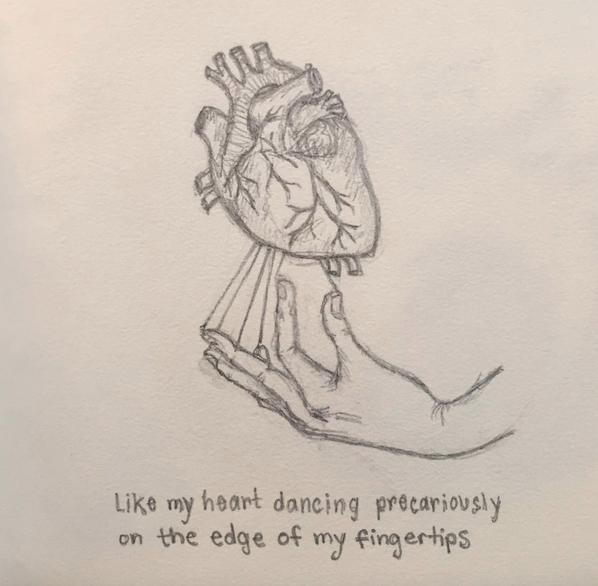 Like my heart dancing precariously
on the edge of my fingertips